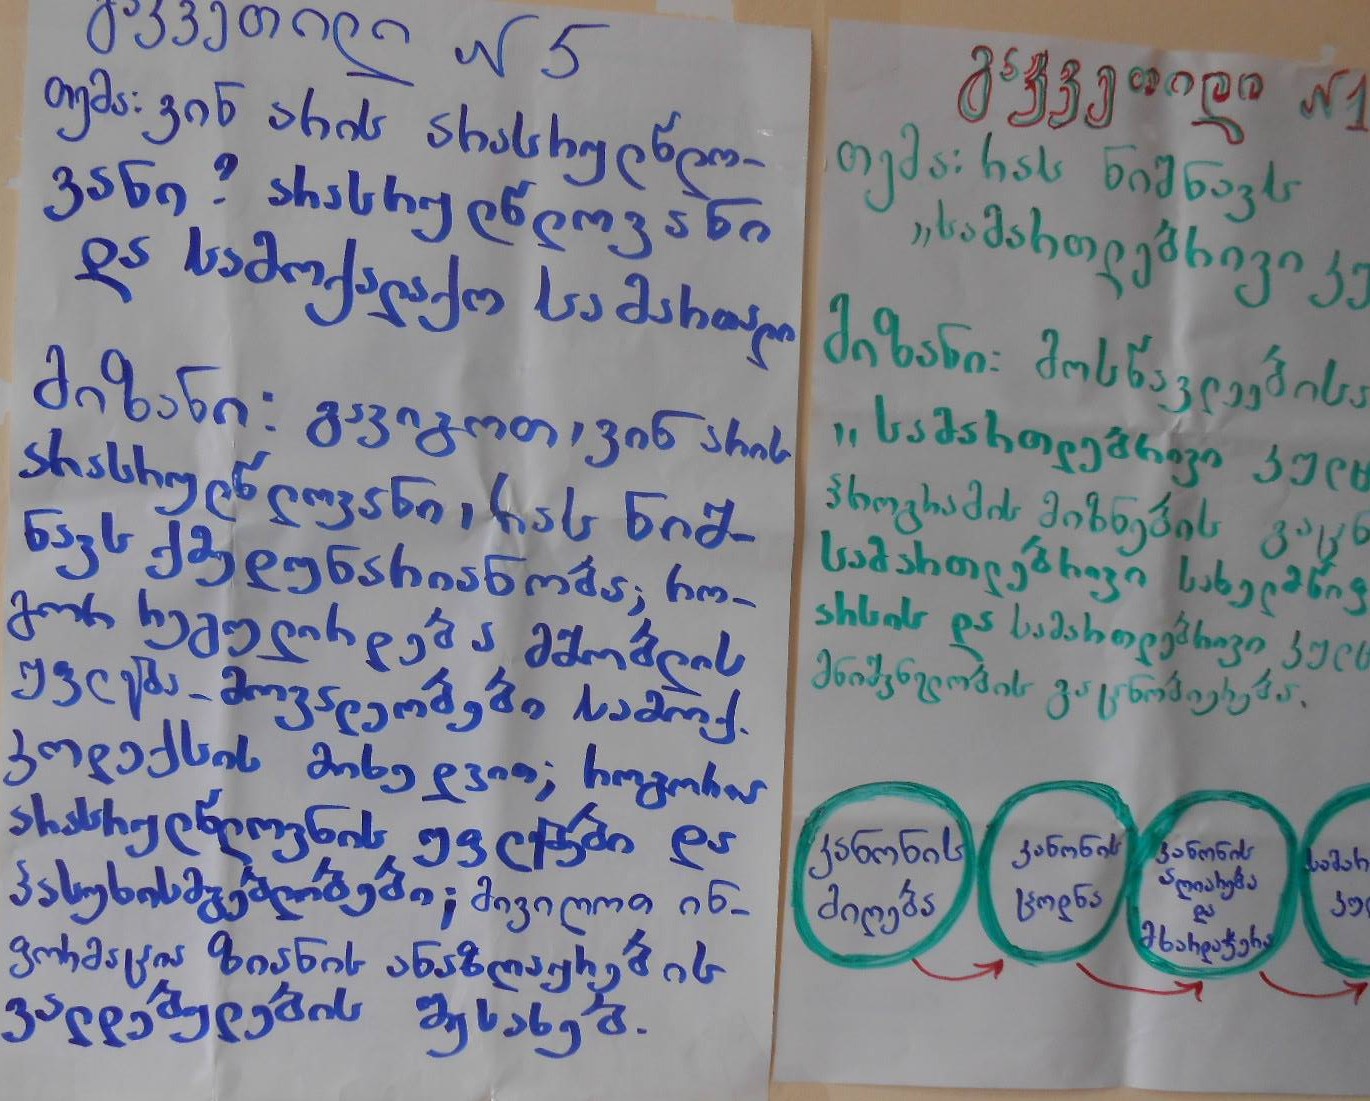 გაკვეთილი №5
თემა: ვინ არის არასრულწლო-
ვანი? არასრულწლოვანი
და სამოქალაქო სამართალი
მიზანი: გავიგოთ, ვინ არის
არასრულწლოვანი, რას ნიშ-
ნავს ქმედუნარიანობა; რო-
გორ რეგულირდება მშობლის
უფლება-მოვალეობები სამოქ.
კოდექსის მიხედვით; როგორია
არასრულწლოვნის უფლებები და
პასუხისმგებლობები; მივიღოთ ინ-
ფორმაცია ზიანის ანაზღაურების
ვალდებულების შესახებ.
გაკვეთილი №1
თემა: რას ნიშნავს
„სამართლებრივი კუ
მიზანი: მოსწავლეებისა
„სამართლებრივი კულტ
პროგრამის მიზნების გაცნ
სამართლებრივი სახელმწიფ
არსის და სამართლებრივი კულტ
მნიშვნელობის გაცნობიერება.
კანონის
მიღება
კანონის
ცოდნა
კანონის
აღიარება
და
მხარდაჭერა
სამარ
კულ